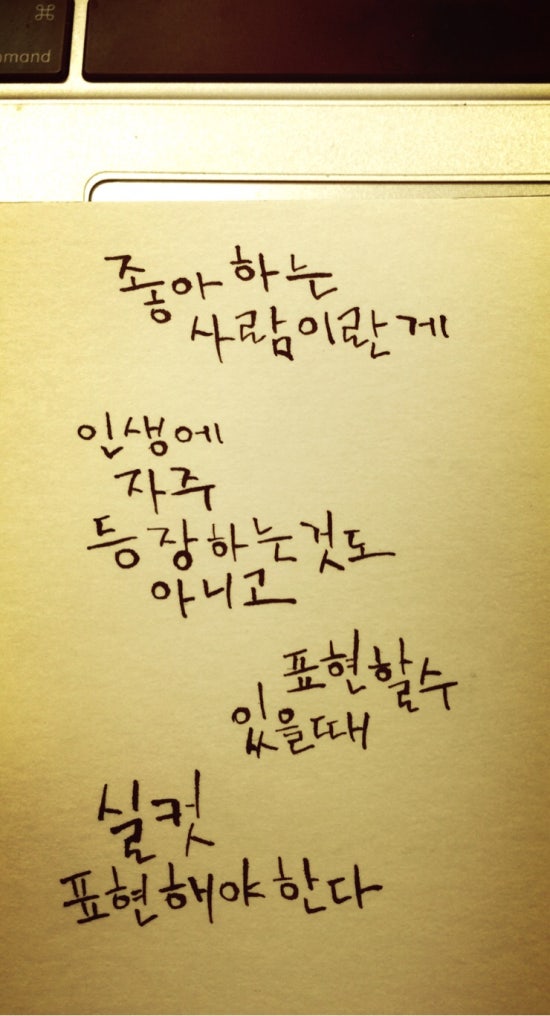 ⌘
mmand
좋아하는
사람이란게
인생에
자주
등장하는것도
아니고
표현할수
있을때
실컷
표현해야한다